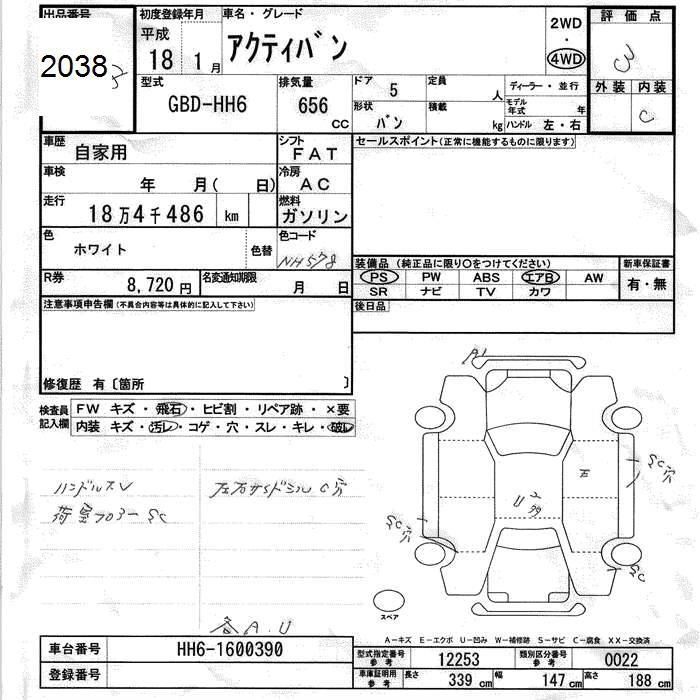 出品番号
2038
初度登録年月
平成
18 1月
車名・グレード
アクティバン
2WD
・
4WD
評価点
3
外装 内装
C
型式
GBD-HH6
排気量
656
CC
ドア 5
定員 人
ディーラー・並行
形状 バン
積載 kg
モデル年式 年
ハンドル 左・右
車歴 自家用
シフト FAT
セールスポイント(正常に機能するものに限ります)
車検 年 月( 日)
冷房 AC
走行 18万4千486 km
燃料 ガソリン
色 ホワイト 色替
色コード NH578
装備品(純正品に限り○をつけてください) 新車保証書
PS PW ABS エアB AW 有・無
SR ナビ TV カワ
R券 8,720円
名変通知期限 月 日
後日品
注意事項申告欄(不具合内容等は具体的に記入して下さい)
修復歴 有〔箇所 〕
検査員記入欄
FW キズ・飛石・ヒビ割・リペア跡・×要
内装 キズ・汚レ・コゲ・穴・スレ・キレ・破レ
A1
ハンドルスレ
荷室フロアーSC
左右サイドシルC穴
SC穴
SC穴
SC
U2
スペア
各A.U
A-キズ E-エクボ U-凹み W-補修跡 S-サビ C-腐食 XX-交換済
車台番号 HH6-1600390
登録番号
型式指定番号参考 12253 類別区分番号参考 0022
車庫証明用参考 長さ 339cm 幅 147cm 高さ 188cm